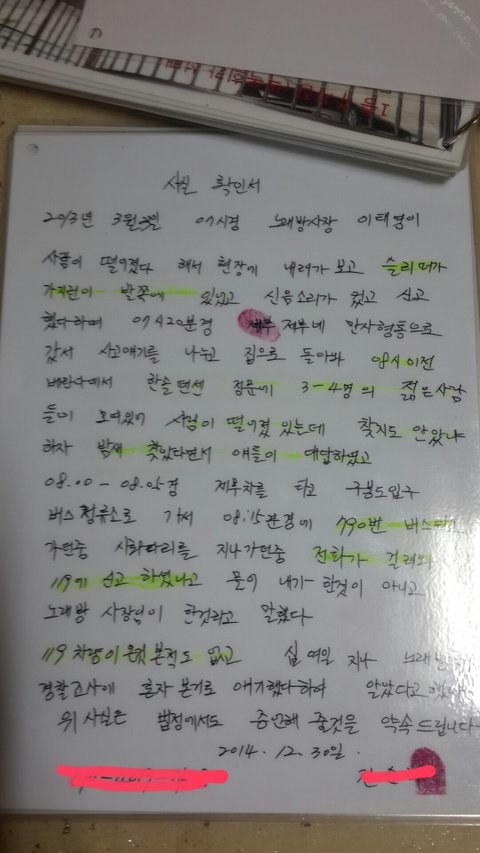 사실 확인서
2013년 3월 07시경 노래방사장 이태영이
사람이 떨어졌다 해서 현장에 내려가 보고 슬리퍼가
가지런이 발쪽에 있었고 신음소리가 있고 신고
했다하며 07시20분경 저부네 만사형통으로
갔서 사고얘기를 나누고 집으로 돌아와 08시 이전
베란다에서 한솔 덴센 정문에 3-4명의 젊은사람
들이 모여있어 사람이 떨어졌 있는데 찾지도 안았냐
하자 밤새 찾았다면서 얘들이 대답하였고
08.00-08.05경 제부차를 타고 구붕도입구
버스 정류소로 가서 08:15분경에 790번 버스
가던중 시화다리를 지나가던중 전화가 걸려와
119에 신고 하셨냐고 물어 내가 한것이 아니고
노래방 사장님이 한것라고 말했다
119 차량이 온적 본적도 없고 십여일 지나 노래
경찰조사에 혼자 본거로 얘기했다하여 알았다고
위 사실은 법정에서도 증언해 줄것을 약속드립니다
2014.12.30일.